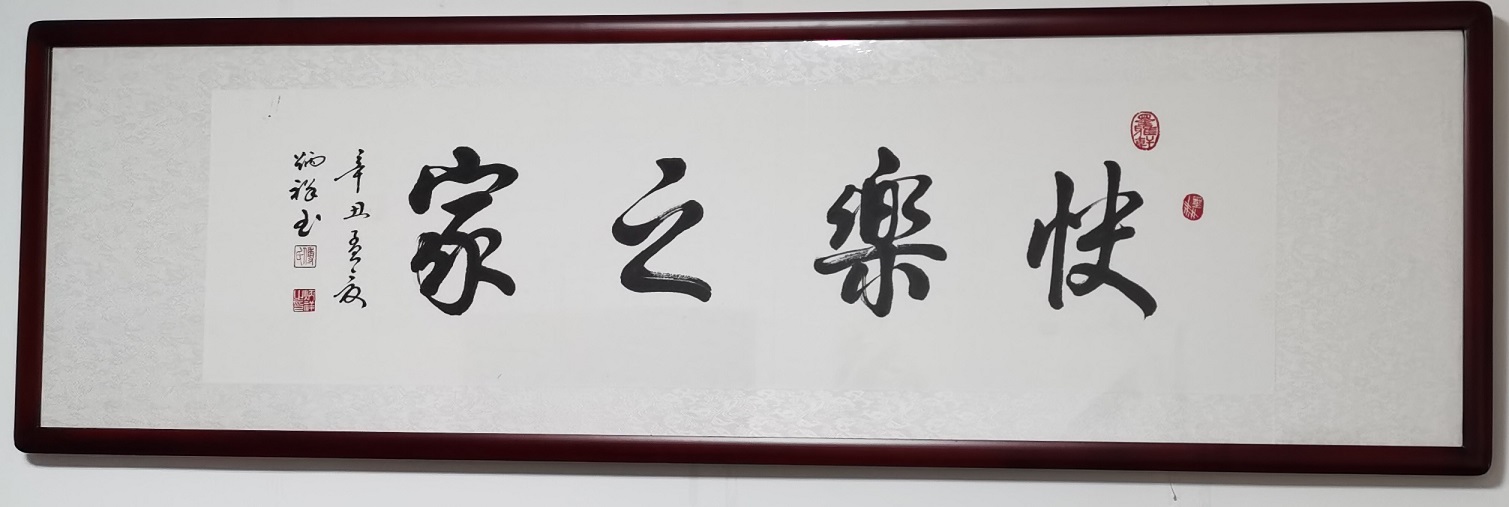 快樂之家
辛丑孟夏
炳祥书